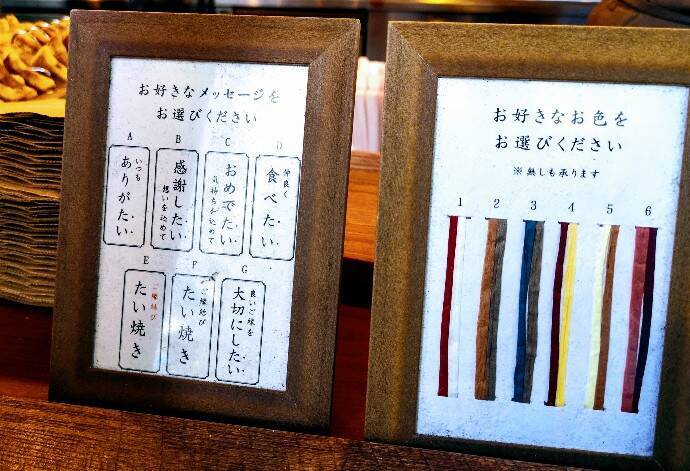 お好きなメッセージを
お選びください
A
いつも
ありがたい
B
感謝したい
想いを込めて
C
おめでたい
気持ちを込めて
D
仲良く
食べたい
E
ご縁結び
たい焼き
F
ご縁結び
たい焼き
G
良いご縁を
大切にしたい
お好きなお色を
お選びください
※無しも承ります
1 2 3 4 5 6